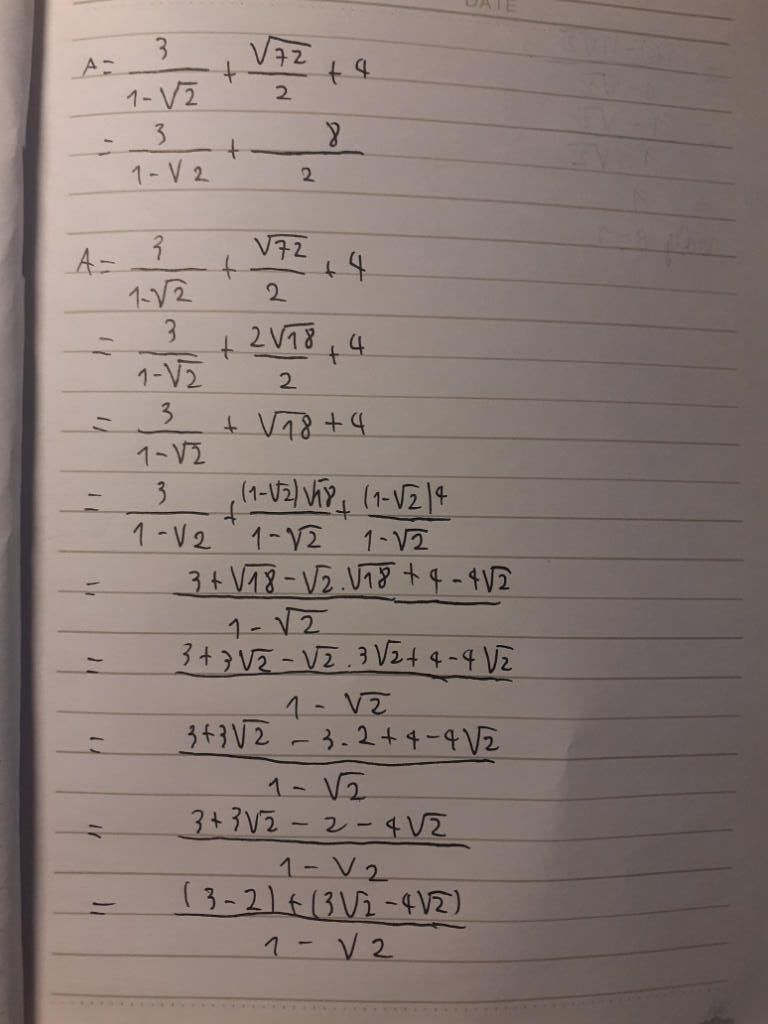 DATE
A = 3/(1-√2) + √72/2 + 4
= 3/(1-√2) + 8/2
A = 3/(1-√2) + √72/2 + 4
= 3/(1-√2) + 2√18/2 + 4
= 3/(1-√2) + √18 + 4
= 3/(1-√2) + (1-√2)√18/(1-√2) + (1-√2)4/(1-√2)
= (3+√18-√2.√18+4-4√2)/(1-√2)
= (3+3√2-√2.3√2+4-4√2)/(1-√2)
= (3+3√2-3.2+4-4√2)/(1-√2)
= (3+3√2-2-4√2)/(1-√2)
= ((3-2)+(3√2-4√2))/(1-√2)